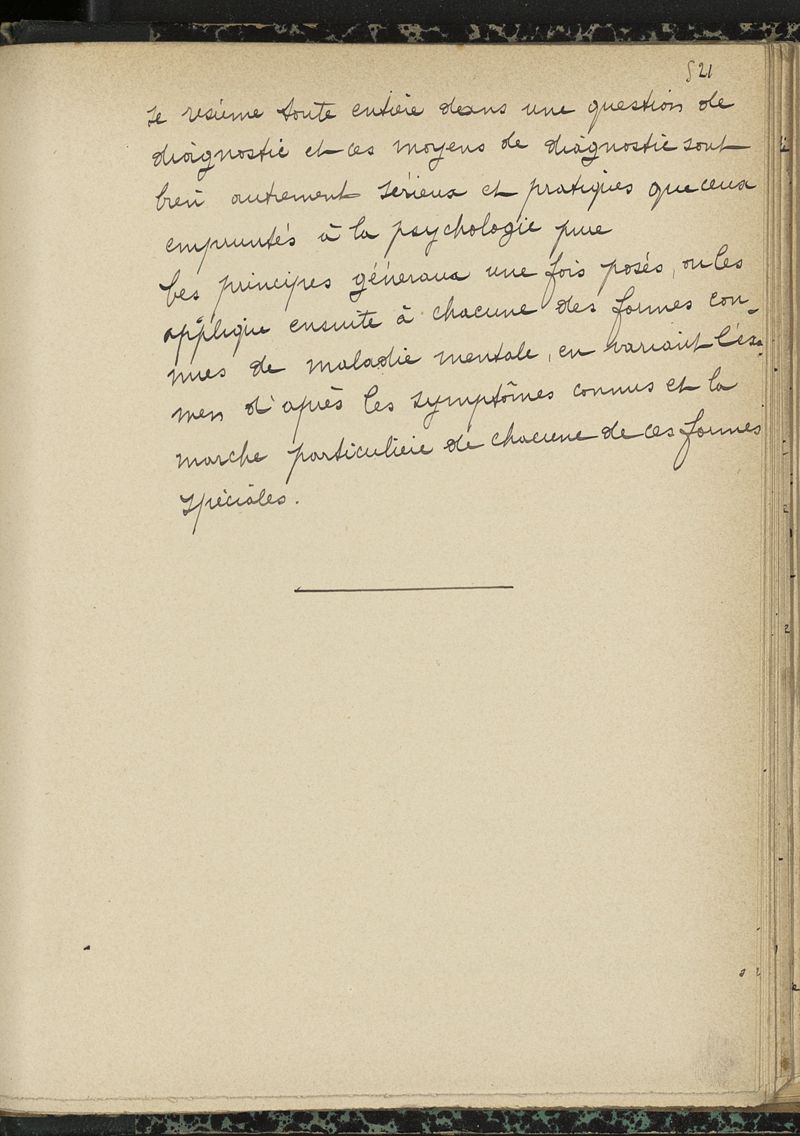 521
se résume toute entière dans une question de
diagnostic et ces moyens de diagnostic sont
bien autrement sérieux et pratiques que ceux
empruntés à la psychologie pure
Ces principes généraux une fois posés, on les
applique ensuite à chacune des formes con-
nues de maladie mentale, en variant l'éxa-
men d'après les symptômes connus et la
marche particulière de chacune de ces formes
spéciales.